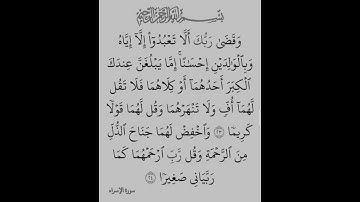 بِسْمِ اللَّهِ الرَّحْمَٰنِ الرَّحِيمِ
وَقَضَىٰ رَبُّكَ أَلَّا تَعْبُدُوٓا۟ إِلَّآ إِيَّاهُ
وَبِٱلْوَٰلِدَيْنِ إِحْسَٰنًا ۚ إِمَّا يَبْلُغَنَّ عِندَكَ
ٱلْكِبَرَ أَحَدُهُمَآ أَوْ كِلَاهُمَا فَلَا تَقُل
لَّهُمَآ أُفٍّ وَلَا تَنْهَرْهُمَا وَقُل لَّهُمَا قَوْلًا
كَرِيمًا ٢٣ وَٱخْفِضْ لَهُمَا جَنَاحَ ٱلذُّلِّ
مِنَ ٱلرَّحْمَةِ وَقُل رَّبِّ ٱرْحَمْهُمَا كَمَا
رَبَّيَانِى صَغِيرًا ٢٤
سورة الإسراء